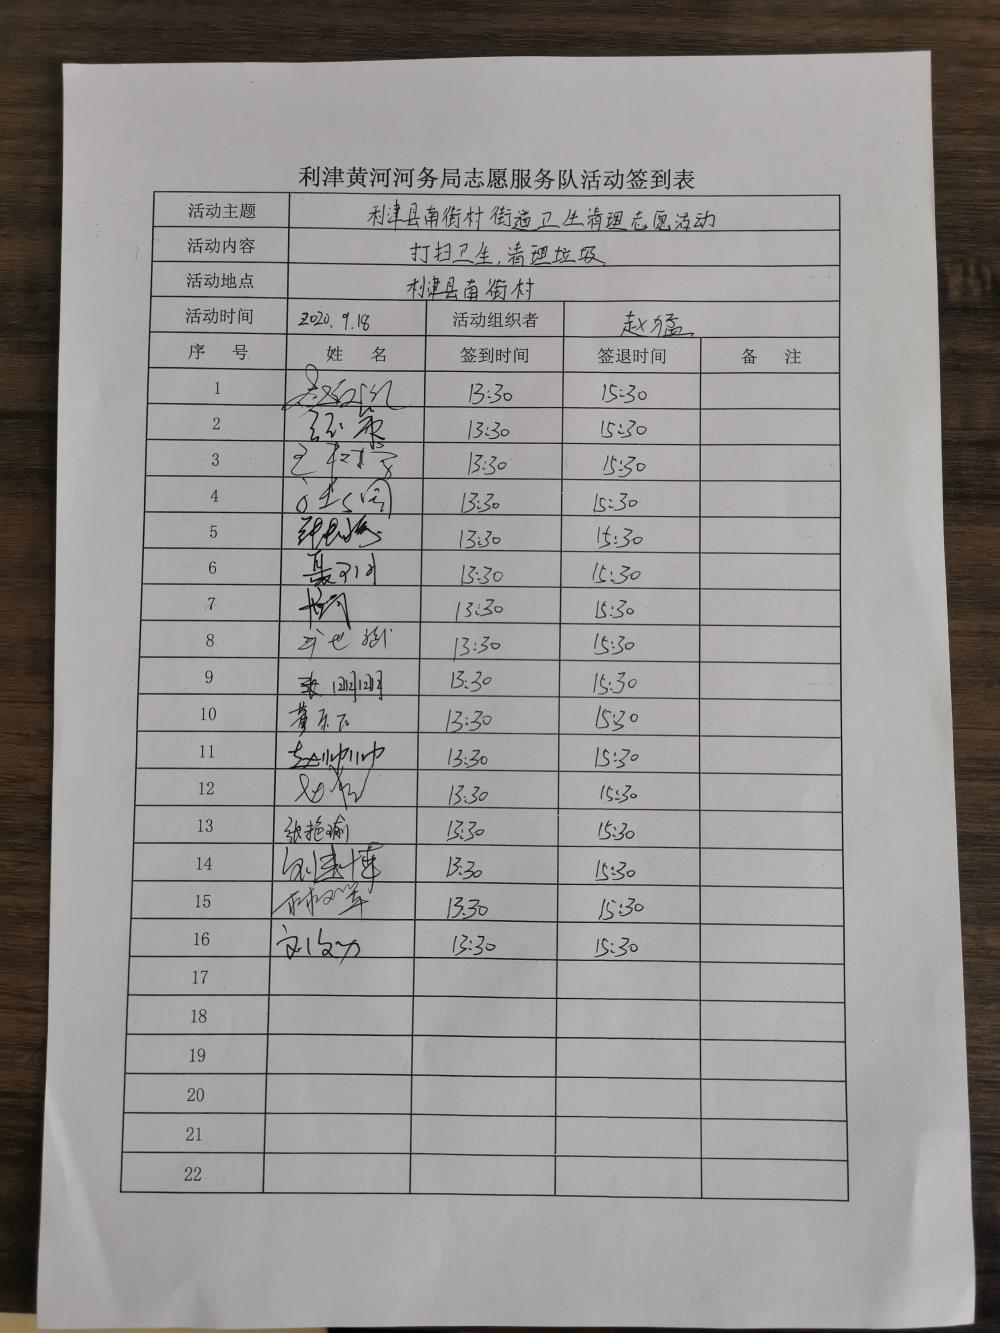 利津黄河河务局志愿服务队活动签到表
活动主题 利津县南街村街道卫生清理志愿活动
活动内容 打扫卫生,清理垃圾
活动地点 利津县南街村
活动时间 2020.9.18 活动组织者 赵猛
序 号 姓 名 签到时间 签退时间 备 注
1 13:30 15:30
2 13:30 15:30
3 13:30 15:30
4 13:30 15:30
5 13:30 15:30
6 13:30 15:30
7 13:30 15:30
8 13:30 15:30
9 张团团 13:30 15:30
10 13:30 15:30
11 赵帅帅 13:30 15:30
12 13:30 15:30
13 张艳瑜 13:30 15:30
14 刘建博 13:30 15:30
15 13:30 15:30
16 13:30 15:30
17
18
19
20
21
22